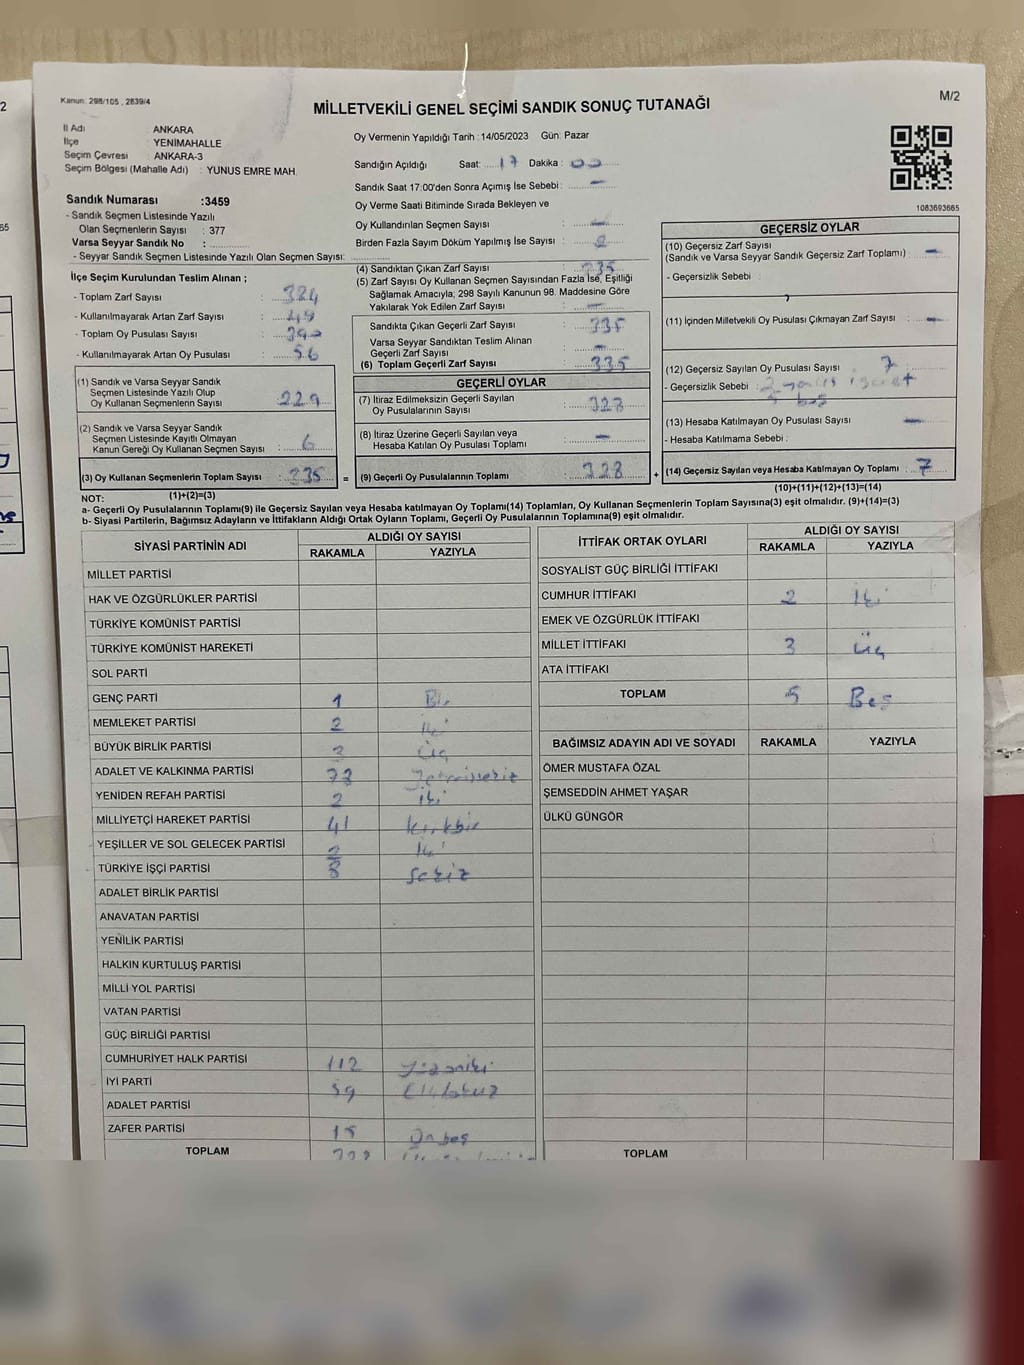 Kanun: 298/105 , 2839/4
M/2
MİLLETVEKİLİ GENEL SEÇİMİ SANDIK SONUÇ TUTANAĞI
İl Adı : ANKARA
İlçe : YENİMAHALLE
Seçim Çevresi : ANKARA-3
Seçim Bölgesi (Mahalle Adı) : YUNUS EMRE MAH.
Sandık Numarası :3459
- Sandık Seçmen Listesinde Yazılı
Olan Seçmenlerin Sayısı : 377
Varsa Seyyar Sandık No :
- Seyyar Sandık Seçmen Listesinde Yazılı Olan Seçmen Sayısı:
Oy Vermenin Yapıldığı Tarih : 14/05/2023 Gün: Pazar
Sandığın Açıldığı Saat: 17 Dakika : 00
Sandık Saat 17:00'den Sonra Açımış İse Sebebi : —
Oy Verme Saati Bitiminde Sırada Bekleyen ve
Oy Kullandırılan Seçmen Sayısı : —
Birden Fazla Sayım Döküm Yapılmış İse Sayısı :
1083693665
İlçe Seçim Kurulundan Teslim Alınan ;
- Toplam Zarf Sayısı : 384
- Kullanılmayarak Artan Zarf Sayısı : 49
- Toplam Oy Pusulası Sayısı : 390
- Kullanılmayarak Artan Oy Pusulası : 56
(1) Sandık ve Varsa Seyyar Sandık
Seçmen Listesinde Yazılı Olup
Oy Kullanan Seçmenlerin Sayısı :
(2) Sandık ve Varsa Seyyar Sandık
Seçmen Listesinde Kayıtlı Olmayan
Kanun Gereği Oy Kullanan Seçmen Sayısı : 6
(3) Oy Kullanan Seçmenlerin Toplam Sayısı : 335 =
(4) Sandıktan Çıkan Zarf Sayısı : 335
(5) Zarf Sayısı Oy Kullanan Seçmen Sayısından Fazla İse, Eşitliği
Sağlamak Amacıyla, 298 Sayılı Kanunun 98. Maddesine Göre
Yakılarak Yok Edilen Zarf Sayısı : —
Sandıkta Çıkan Geçerli Zarf Sayısı : 335
Varsa Seyyar Sandıktan Teslim Alınan
Geçerli Zarf Sayısı : —
(6) Toplam Geçerli Zarf Sayısı : 335
GEÇERLİ OYLAR
(7) İtiraz Edilmeksizin Geçerli Sayılan
Oy Pusulalarının Sayısı : 328
(8) İtiraz Üzerine Geçerli Sayılan veya
Hesaba Katılan Oy Pusulası Toplamı : —
(9) Geçerli Oy Pusulalarının Toplamı : 328 +
GEÇERSİZ OYLAR
(10) Geçersiz Zarf Sayısı
(Sandık ve Varsa Seyyar Sandık Geçersiz Zarf Toplamı) : —
- Geçersizlik Sebebi :
(11) İçinden Milletvekili Oy Pusulası Çıkmayan Zarf Sayısı : —
(12) Geçersiz Sayılan Oy Pusulası Sayısı : 7
- Geçersizlik Sebebi : 2 yanlış işaret
5 boş
(13) Hesaba Katılmayan Oy Pusulası Sayısı : —
- Hesaba Katılmama Sebebi :
(14) Geçersiz Sayılan veya Hesaba Katılmayan Oy Toplamı : 7
(1)+(2)=(3)
(10)+(11)+(12)+(13)=(14)
NOT:
a- Geçerli Oy Pusulalarının Toplamı(9) ile Geçersiz Sayılan veya Hesaba katılmayan Oy Toplamı(14) Toplamları, Oy Kullanan Seçmenlerin Toplam Sayısına(3) eşit olmalıdır. (9)+(14)=(3)
b- Siyasi Partilerin, Bağımsız Adayların ve İttifakların Aldığı Ortak Oyların Toplamı, Geçerli Oy Pusulalarının Toplamına(9) eşit olmalıdır.
SİYASİ PARTİNİN ADI ALDIĞI OY SAYISI
RAKAMLA YAZIYLA
MİLLET PARTİSİ
HAK VE ÖZGÜRLÜKLER PARTİSİ
TÜRKİYE KOMÜNİST PARTİSİ
TÜRKİYE KOMÜNİST HAREKETİ
SOL PARTİ
GENÇ PARTİ 1 Bir
MEMLEKET PARTİSİ 2 iki
BÜYÜK BİRLİK PARTİSİ 3 üç
ADALET VE KALKINMA PARTİSİ 78 Yetmişsekiz
YENİDEN REFAH PARTİSİ 2 iki
MİLLİYETÇİ HAREKET PARTİSİ 41 kırkbir
YEŞİLLER VE SOL GELECEK PARTİSİ 2 iki
TÜRKİYE İŞÇİ PARTİSİ 8 sekiz
ADALET BİRLİK PARTİSİ
ANAVATAN PARTİSİ
YENİLİK PARTİSİ
HALKIN KURTULUŞ PARTİSİ
MİLLİ YOL PARTİSİ
VATAN PARTİSİ
GÜÇ BİRLİĞİ PARTİSİ
CUMHURİYET HALK PARTİSİ 112 Yüzoniki
İYİ PARTİ 59 Ellidokuz
ADALET PARTİSİ
ZAFER PARTİSİ 15 Onbeş
TOPLAM
İTTİFAK ORTAK OYLARI ALDIĞI OY SAYISI
RAKAMLA YAZIYLA
SOSYALİST GÜÇ BİRLİĞİ İTTİFAKI
CUMHUR İTTİFAKI 2 iki
EMEK VE ÖZGÜRLÜK İTTİFAKI
MİLLET İTTİFAKI 3 üç
ATA İTTİFAKI
TOPLAM 5 Beş
BAĞIMSIZ ADAYIN ADI VE SOYADI RAKAMLA YAZIYLA
ÖMER MUSTAFA ÖZAL
ŞEMSEDDİN AHMET YAŞAR
ÜLKÜ GÜNGÖR
TOPLAM